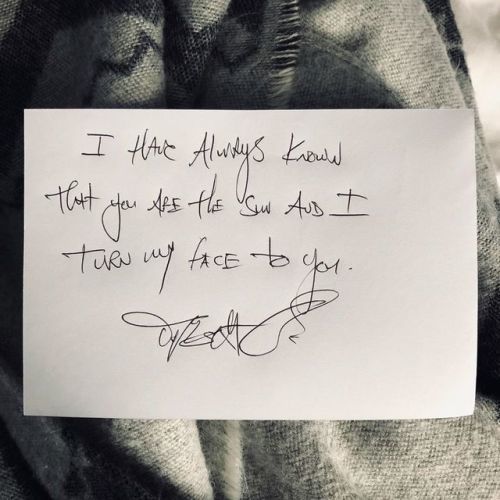 I HAVE ALWAYS KNOWN
THAT you ARE THE SUN AND I
TURN my FACE to you.